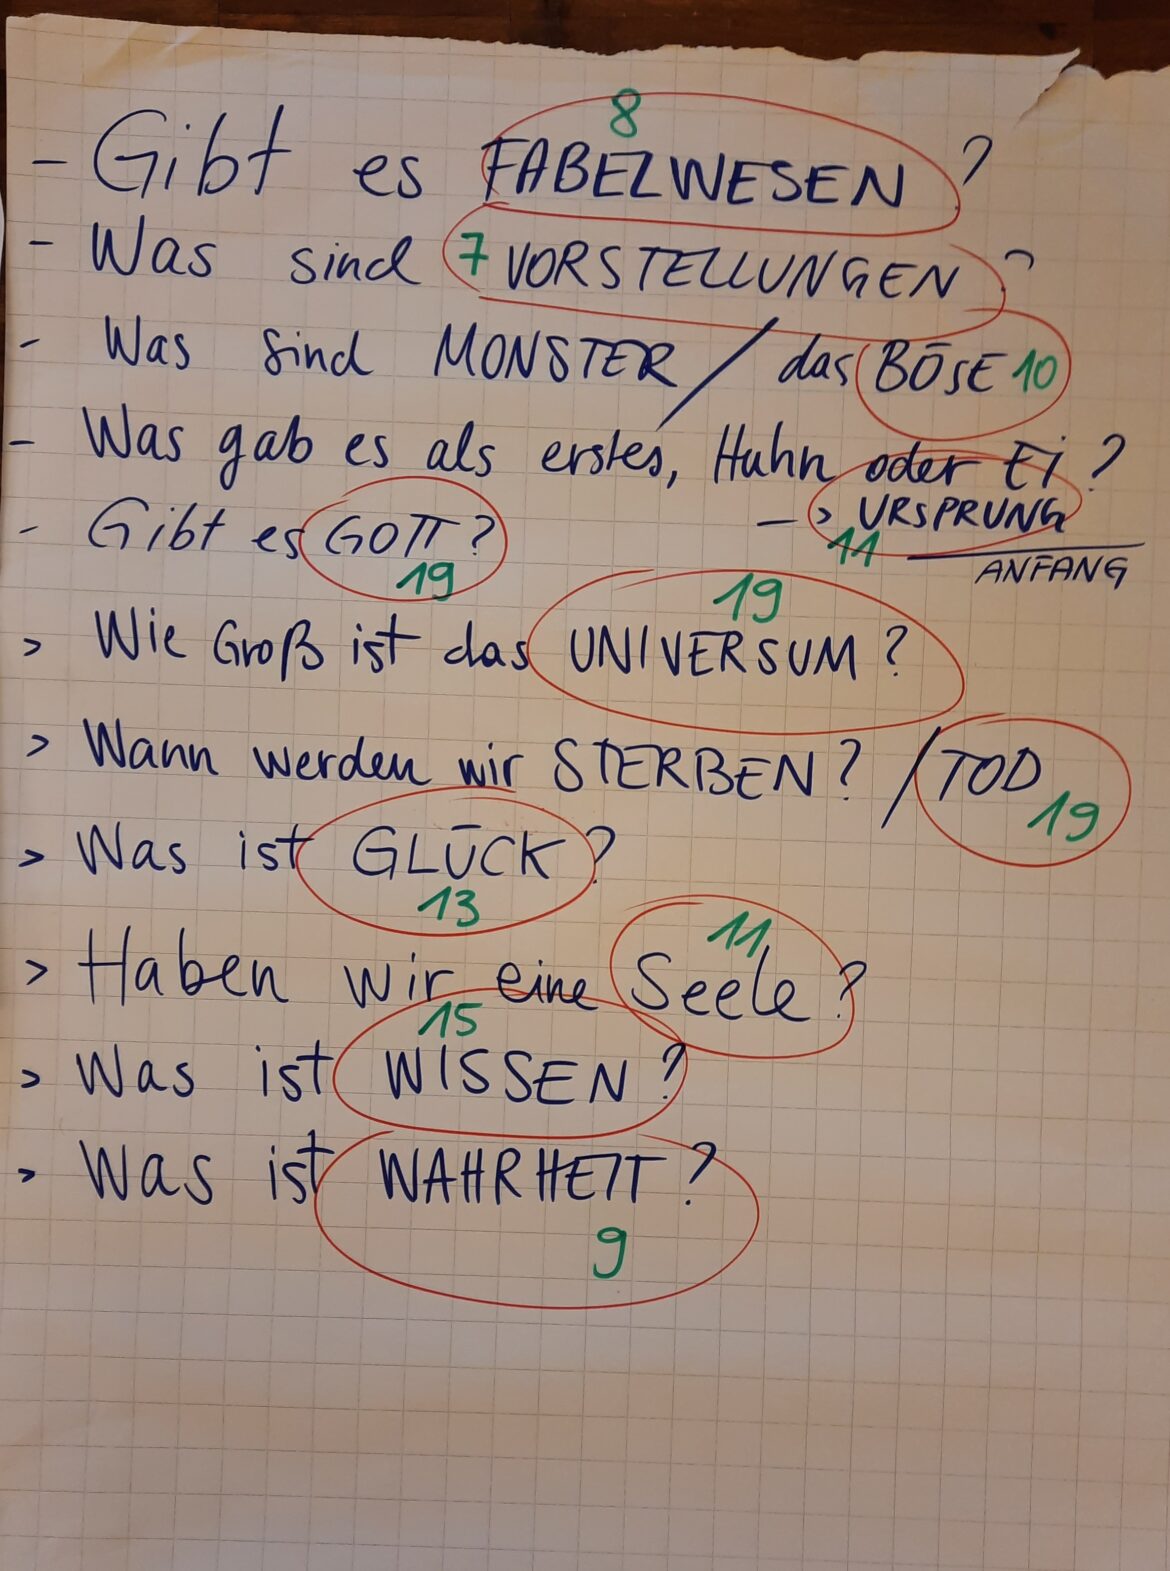 8
- Gibt es FABELWESEN ?
- Was sind 7 VORSTELLUNGEN ?
- Was sind MONSTER / das BÖSE 10
- Was gab es als erstes, Huhn oder Ei ?
-> URSPRUNG
11 ANFANG
- Gibt es GOTT ?
19
19
> Wie Groß ist das UNIVERSUM ?
> Wann werden wir STERBEN ? / TOD
19
> Was ist GLÜCK ?
13
11
> Haben wir eine Seele ?
15
> Was ist WISSEN ?
> Was ist WAHRHEIT ?
9